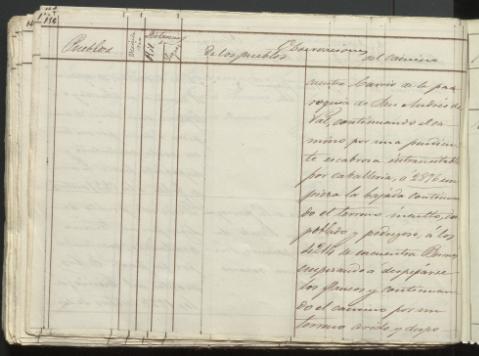 Pueblos
Kil.
Observaciones
De los pueblos
del camino
cuentra Barrio de la par
roquia de San Andrés de
Val, continuando el ca
mino por una pendien
te escabrosa intransitable
por caballeria, á 2876 em
pieza la bajada continuan
do el terreno inculto, des
poblado y pedregoso, á los
se encuentra
empezando á despejarse
los flancos y continuan
do el camino por un
terreno arido y despo